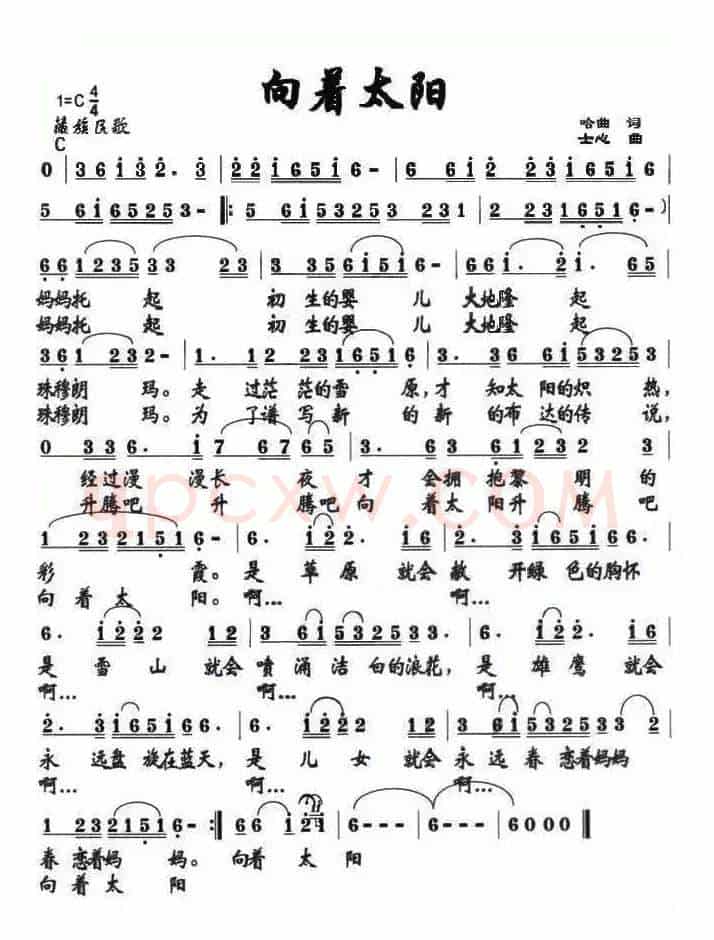 向着太阳
1=C 4/4
藏族民歌
C
哈曲 词
士心 曲
0 | 3 6 i 3 2 . 3 | 2 2 i 6 5 i 6 - | 6 6 i 2 3 i 6 5 i 6 |
5 6 i 6 5 2 5 3 - |: 5 6 i 5 3 2 5 3 2 3 1 | 2 2 3 1 6 5 1 6 - ) |
6 6 1 2 3 5 3 3 2 3 | 3 3 5 6 i 5 i 6 - | 6 i . 2 i . 6 5 |
妈妈托 起 初 生的婴 儿 大地隆 起
妈妈托 起 初 生的婴 儿 大地隆 起
3 6 1 2 3 2 - | 1 . 1 2 2 3 1 6 5 1 | 6 . 6 i 5 3 2 5 3 |
珠穆朗 玛。走 过茫 茫的雪 原,才 知太 阳的炽 热,
珠穆朗 玛。为 了谱 写新 的 新 的布 达的传 说,
0 3 3 6 . i | 7 6 7 6 5 6 - | 3 . 6 3 6 1 2 2 . 3 |
经过漫 漫长 夜 才 会拥 抱黎 明 的
升腾吧 升 腾吧向 着太阳升 腾 吧
1 2 3 2 1 5 1 6 - | 6 . i 2 2 . | 3 6 i 2 i 6 5 i 6 |
彩 霞。是 草原 就会敞 开绿 色的胸怀
向着 太 阳。啊... 啊...
6 . i 2 2 2 1 2 | 3 6 i 5 3 2 5 3 3 | 6 . i 2 2 i 6 |
是 雪 山 就会 喷 涌洁 白的浪花,是 雄鹰 就会
啊... 啊... 啊...
2 . 3 i 6 5 i 6 6 . | 6 . i 2 2 2 1 2 | 3 6 i 5 3 2 5 3 3 |
永 远盘 旋在蓝天,是 儿 女 就会 永 远眷 恋着妈妈
啊... 啊... 啊...
1 2 3 2 1 5 1 6 - :| 6 6 i 2 i | 6 - - - | 6 - - - | 6 0 0 0 ||
眷 恋着妈 妈。 向着 太 阳
向着 太 阳
qpcxw.com